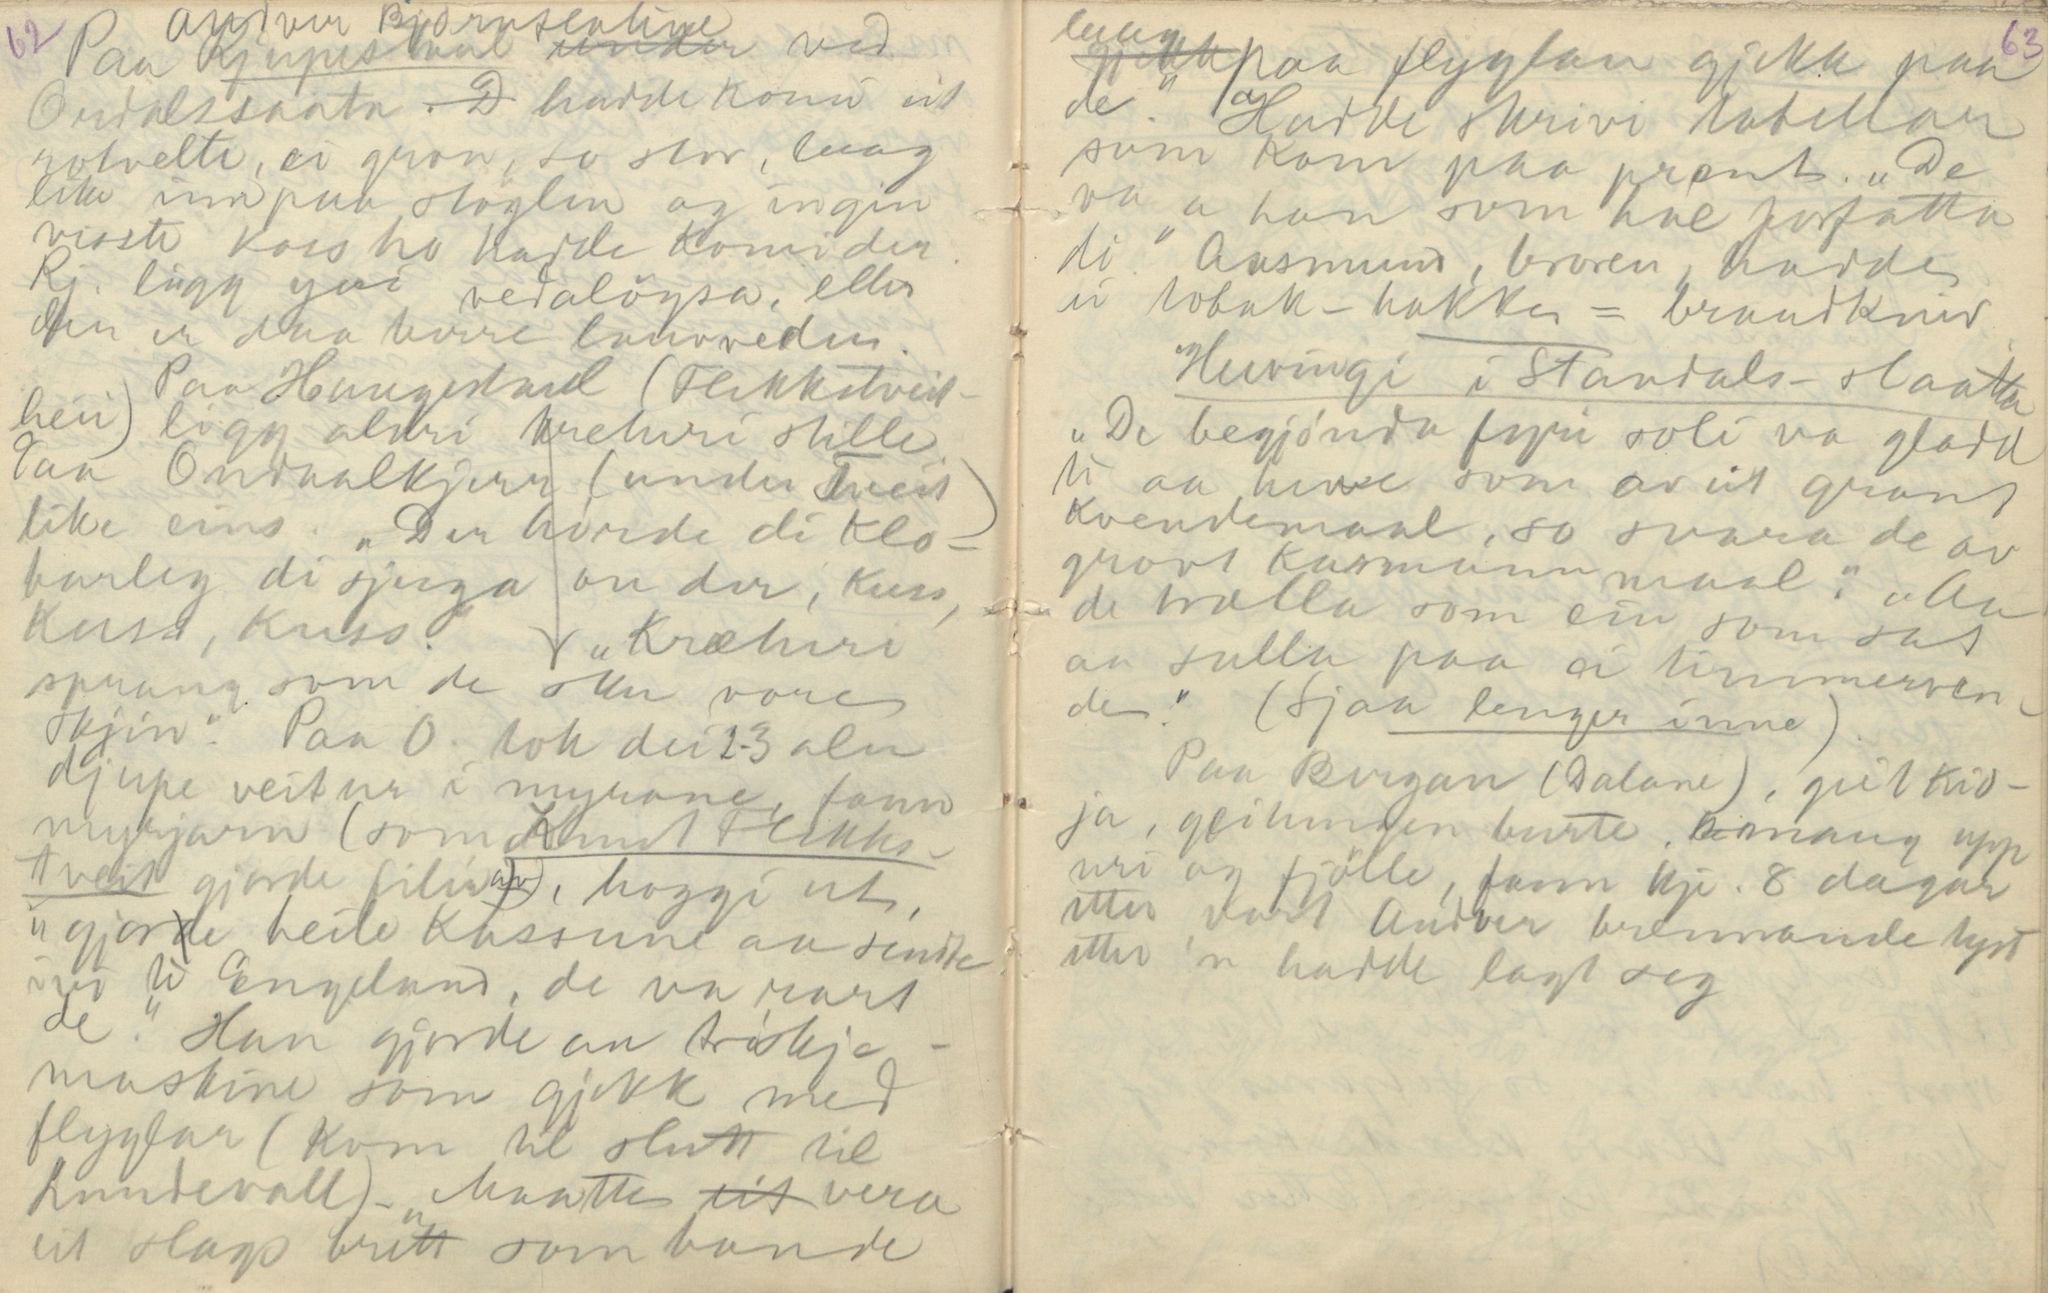 62
Andver Bjørnsenhine
Paa Kjupestaul under ved
Ordalssaata. D hadde komi eit
rotvelte, ei gron, so stor, laag
like innpaa støylen og ingin
visste koss ho hadde komi der.
Kj. ligg yvi vedaløysa, eller
der er daa berre lauvveden.
Paa Haugestaul (Flekkstveit-
heii) ligg aldri kreturi stille.
Paa Ordaalkjerr (under Tveit)
like eins. „Der hørde di klo-
barleg di sjuga on der, kuss,
kuss, kuss." „Kræturi
sprang som de sku vore
skjin". Paa O. tok dei 2-3 aln
djupe veitur i myrane, fann
myrjarn (som Knut Flekks-
tveit gjorde filur av), hoggi ut,
„gjorde heile kassune aa sendte
ivi ti Engeland, de va rart
de." Han gjorde an triskje-
maskine som gjekk med
flyglar (kom til slutt til
Lundevall) - „Maatte eit vera
eit slags brett som bande
63
laag
gjekk paa flyglan gjekk paa
de." og Hadde skrivi tabellar
som kom paa prent. „De
va a han som hae forfatta
di." Aasmund, broren, hadde
ei tobak-hakke = brandkniv
Huringi i Standals-slaatta
„De begjønda fyri soli va gladd
ti aa huve som av eit grant
kvendemaal, so svara de av
grovt kasmannmaal." „Aa
de tralla som ein som sat
aa sulla paa ei timmerven-
de." (Sjaa lenger inne).
Paa Bergan (Dalane), geit kid-
ja, geitungen burte. Romaug upp
uri og fjølle, fann kje. 8 dagar
etter vart Andver brennande tyst
etter 'n hadde lagt seg